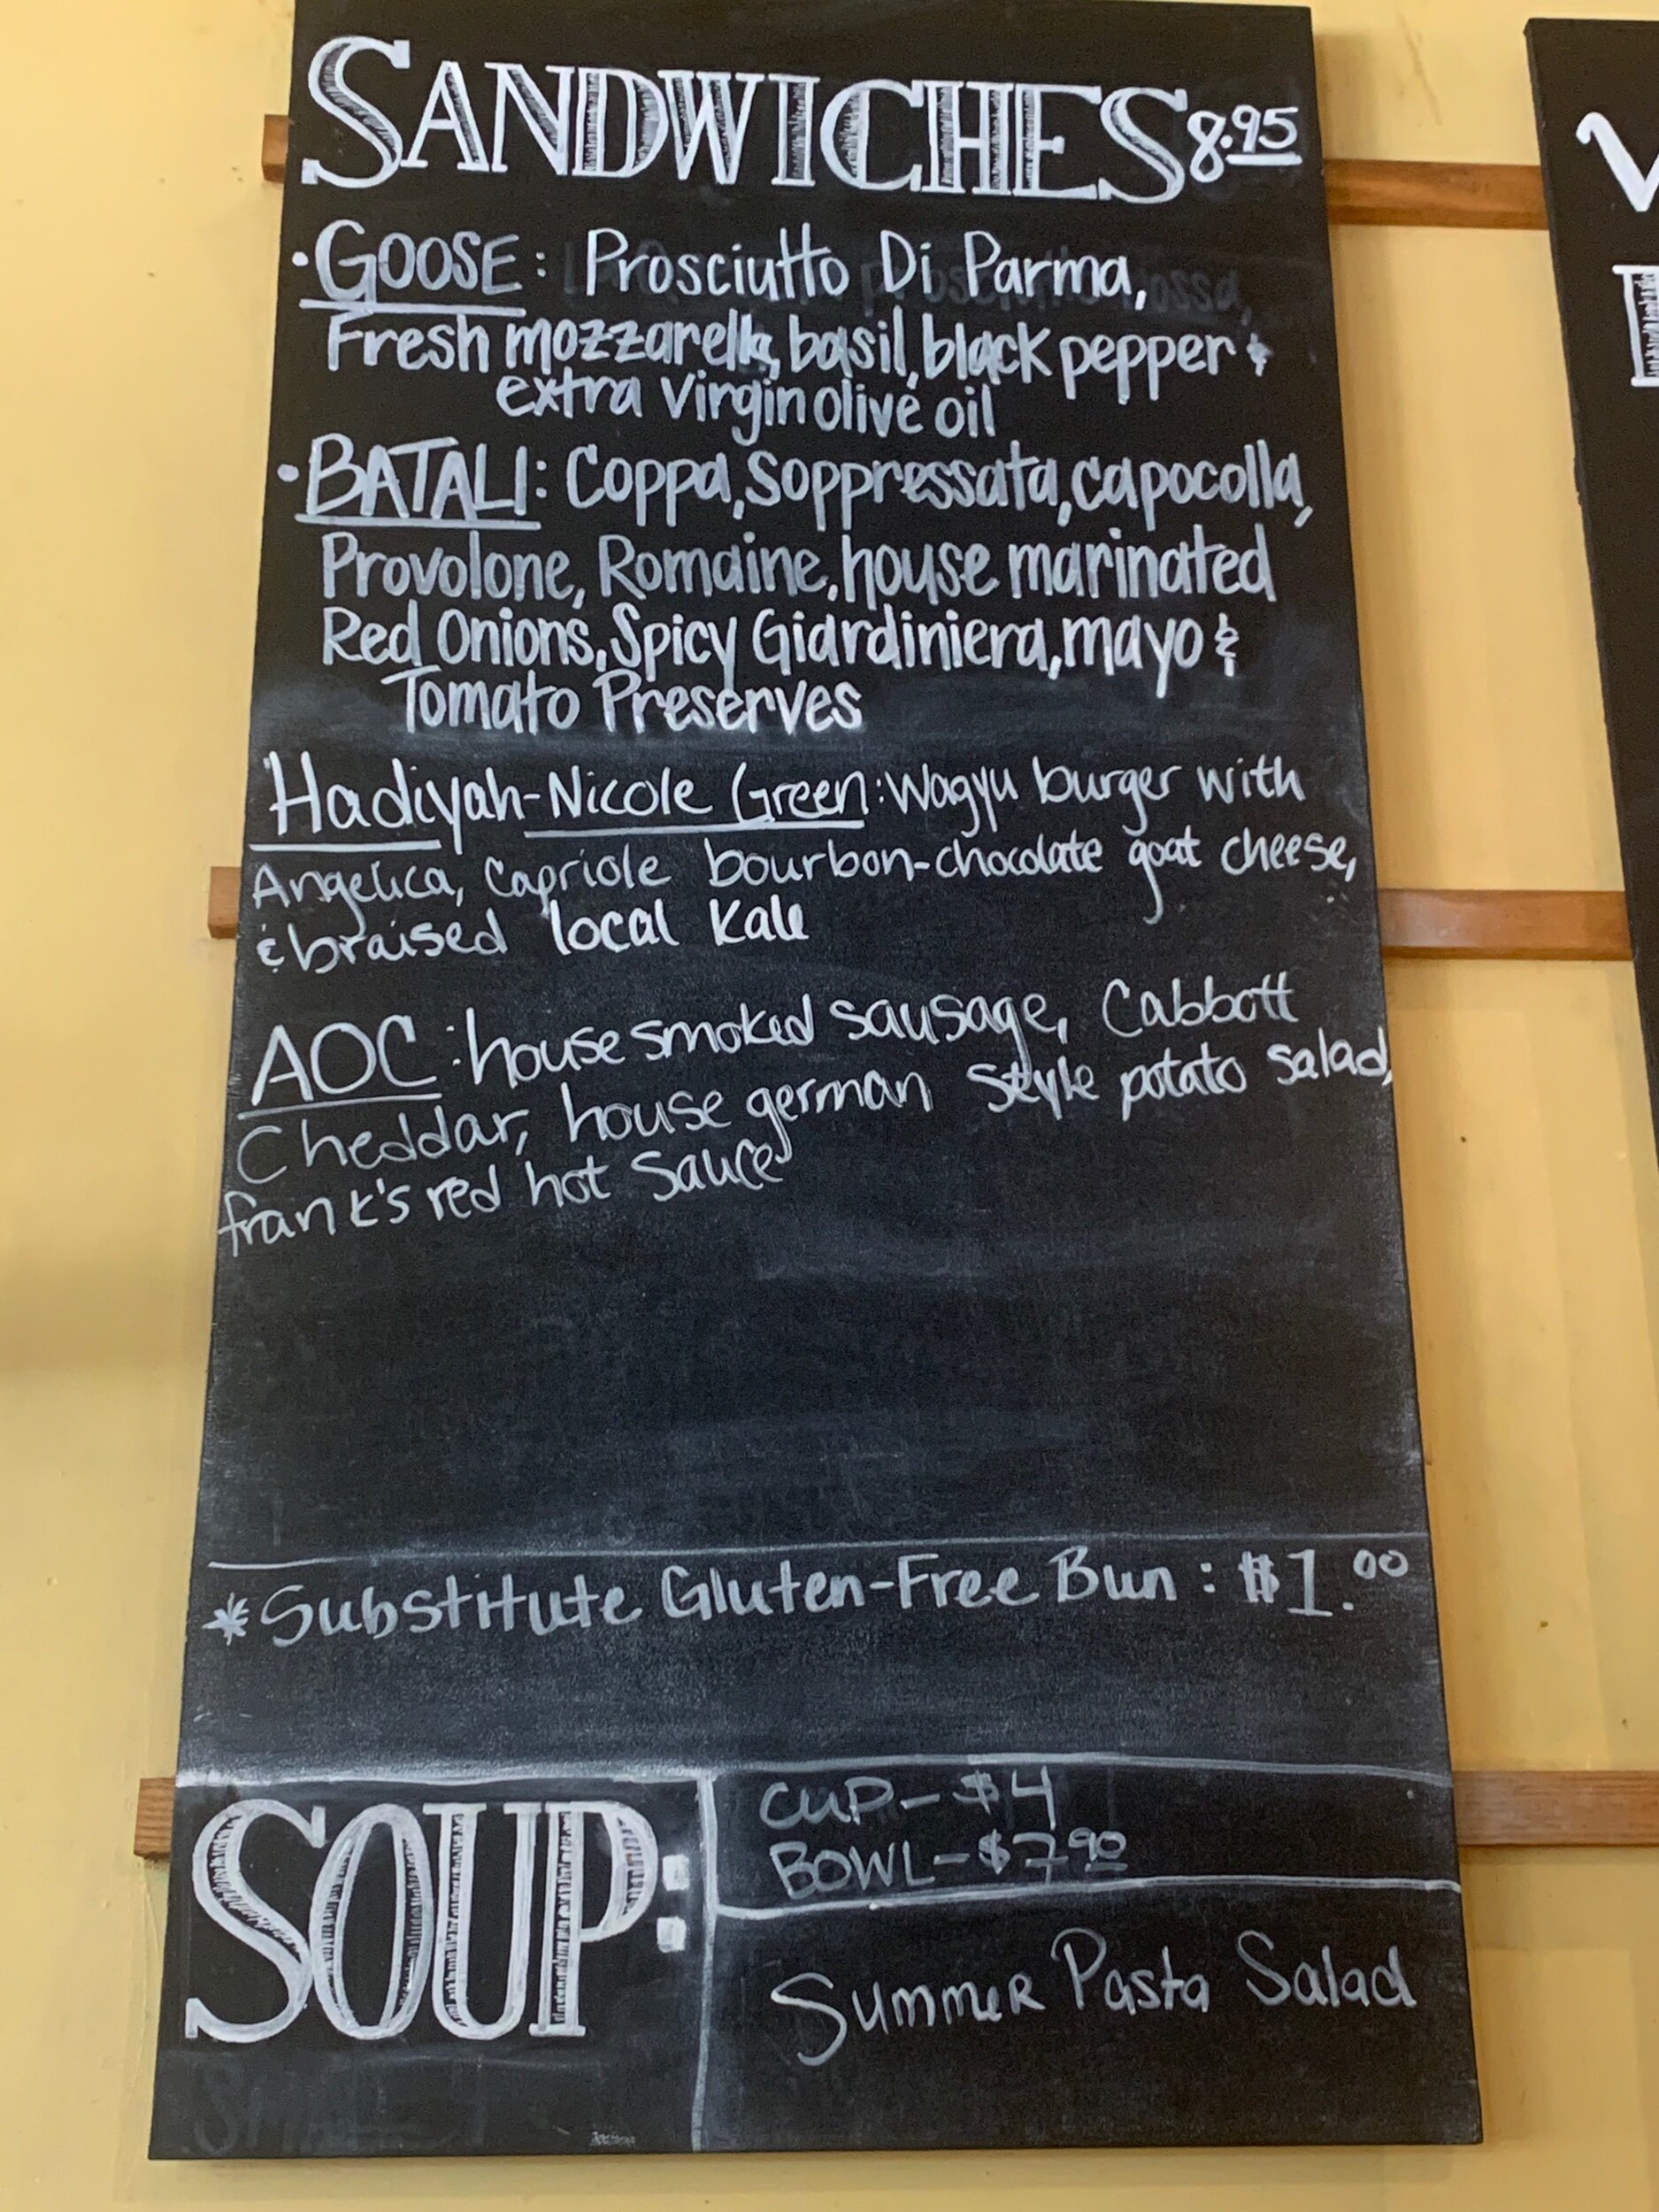 SANDWICHES 8.95
· GOOSE: Prosciutto Di Parma,
Fresh mozzarella, basil, black pepper &
extra virgin olive oil
· BATALI: Coppa, Soppressata, capocolla,
Provolone, Romaine, house marinated
Red Onions, Spicy Giardiniera, mayo &
Tomato Preserves
Hadiyah-Nicole Green: Wagyu burger with
Angelica, Capriole bourbon-chocolate goat cheese,
& braised local Kale
AOC: house smoked sausage, Cabbott
Cheddar, house german style potato salad,
frank's red hot Sauce
*Substitute Gluten-Free Bun: $1.00
SOUP:
CUP- $4
BOWL- $7.90
Summer Pasta Salad